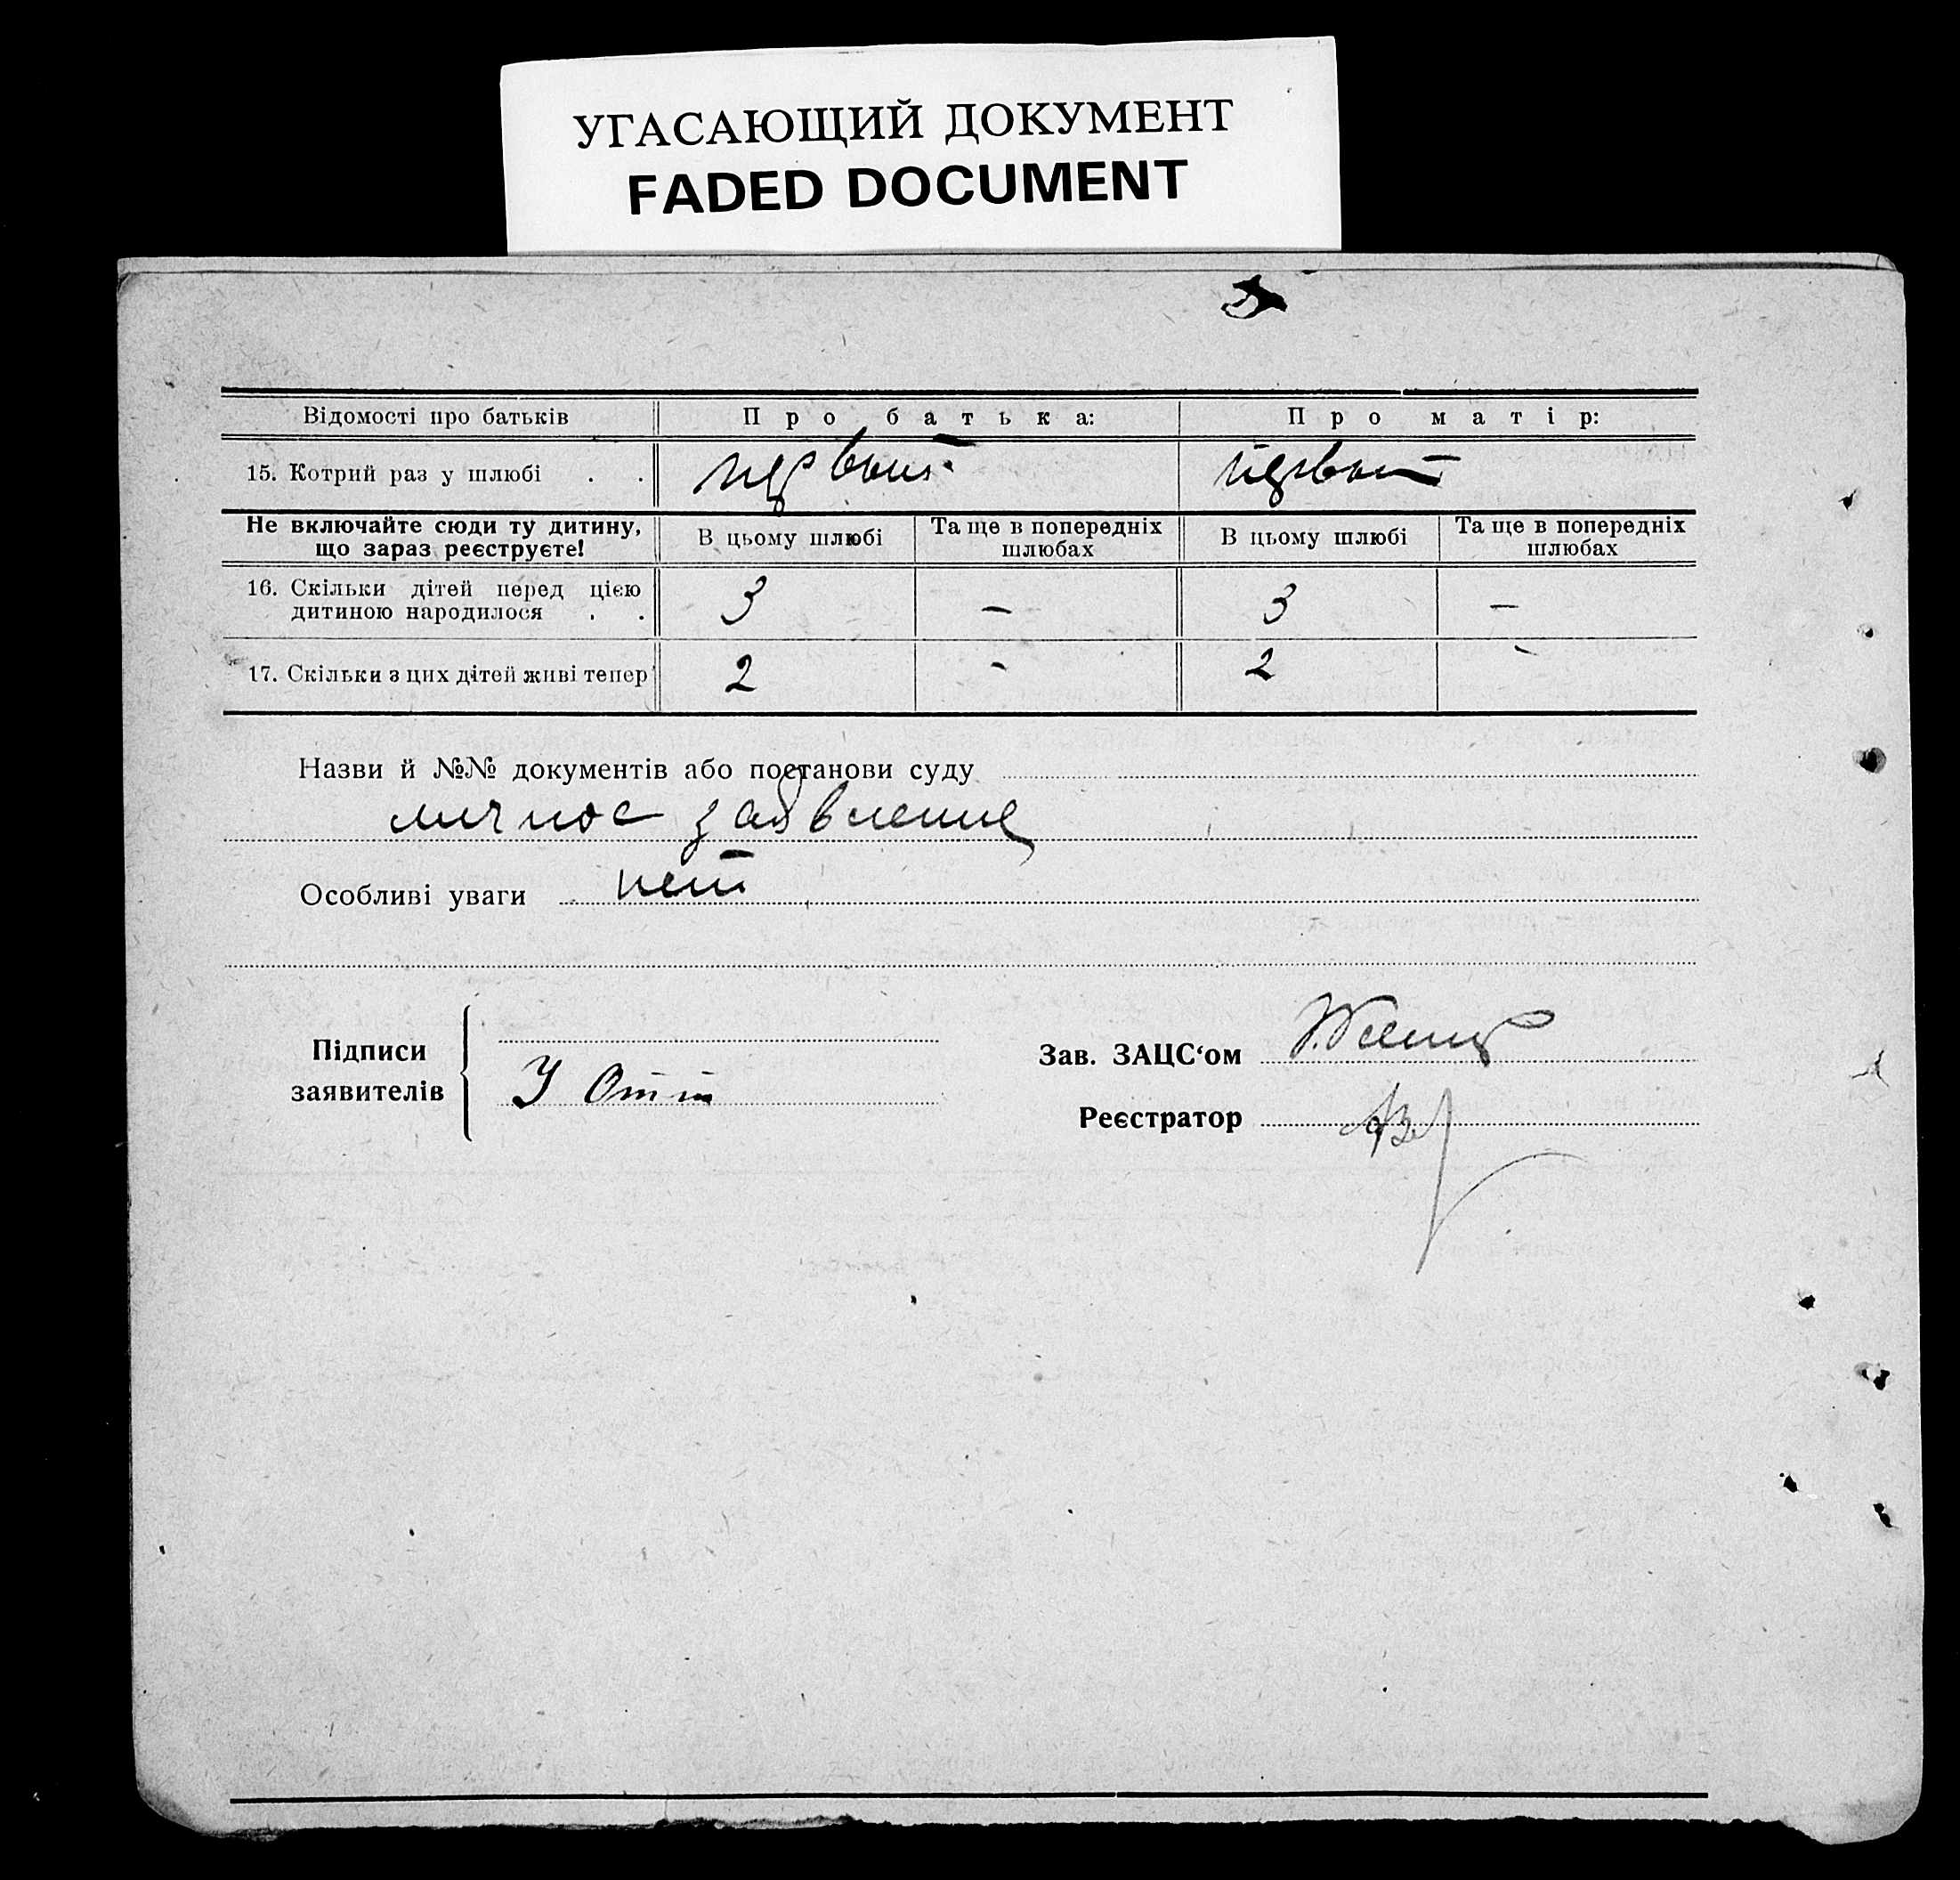 УГАСАЮЩИЙ ДОКУМЕНТ
FADED DOCUMENT
Відомості про батьків Про батька: Про матір:
15. Котрий раз у шлюбі . . первый первый
Не включайте сюди ту дитину, що зараз реєструєте! В цьому шлюбі Та ще в попередніх шлюбах В цьому шлюбі Та ще в попередніх шлюбах
16. Скільки дітей перед цією
дитиною народилося . . 3 — 3 —
17. Скільки з цих дітей живі тепер 2 - 2 -
Назви й №№ документів або постанови суду
личное заявление
Особливі уваги нет
Підписи
заявителів
У Отт
Зав. ЗАЦС‘ом
Реєстратор